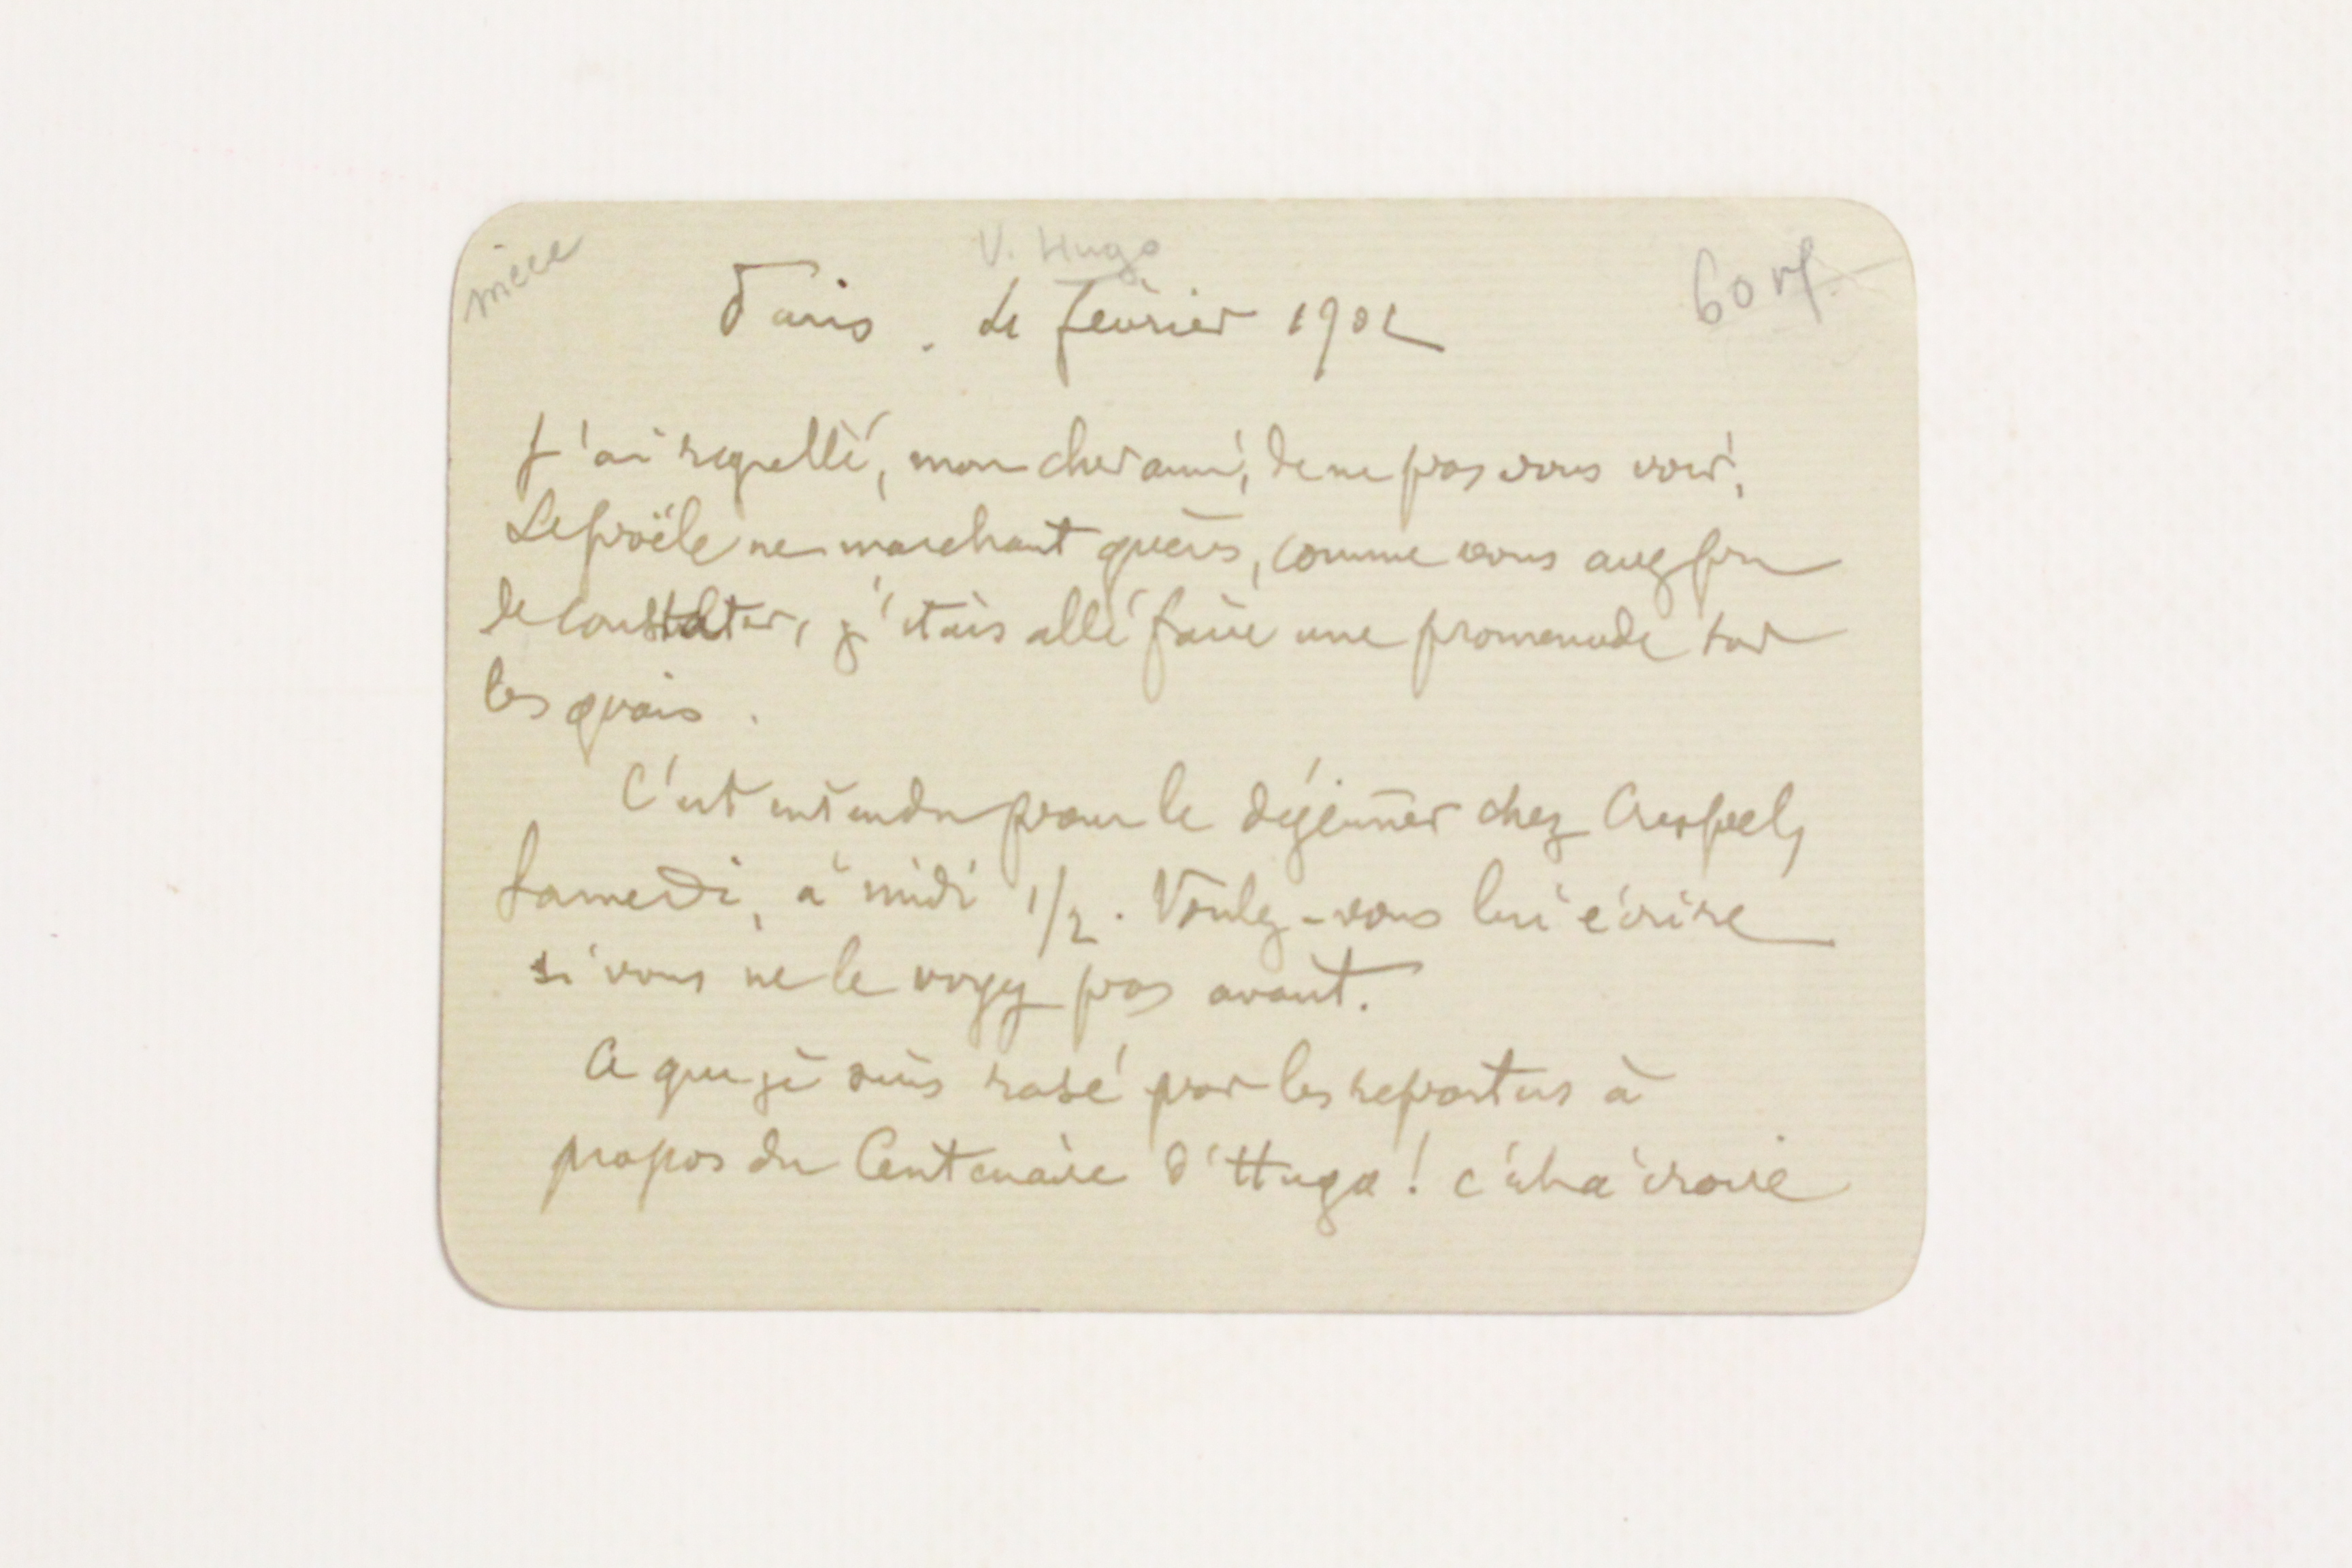 V. Hugo
60 nf.
Paris. Le février 1902
J'ai regretté, mon cher ami, de ne pas vous voir.
Le poële ne marchant guère, comme vous avez pu
le constater, j'étais allé faire une promenade sur
les quais.
C'est entendu pour le déjeuner chez
Samedi, à midi 1/2. Voulez-vous lui écrire
si vous ne le voyez pas avant.
Ce que je suis rasé par les reporters à
propos du Centenaire d'Hugo! c'est à croire